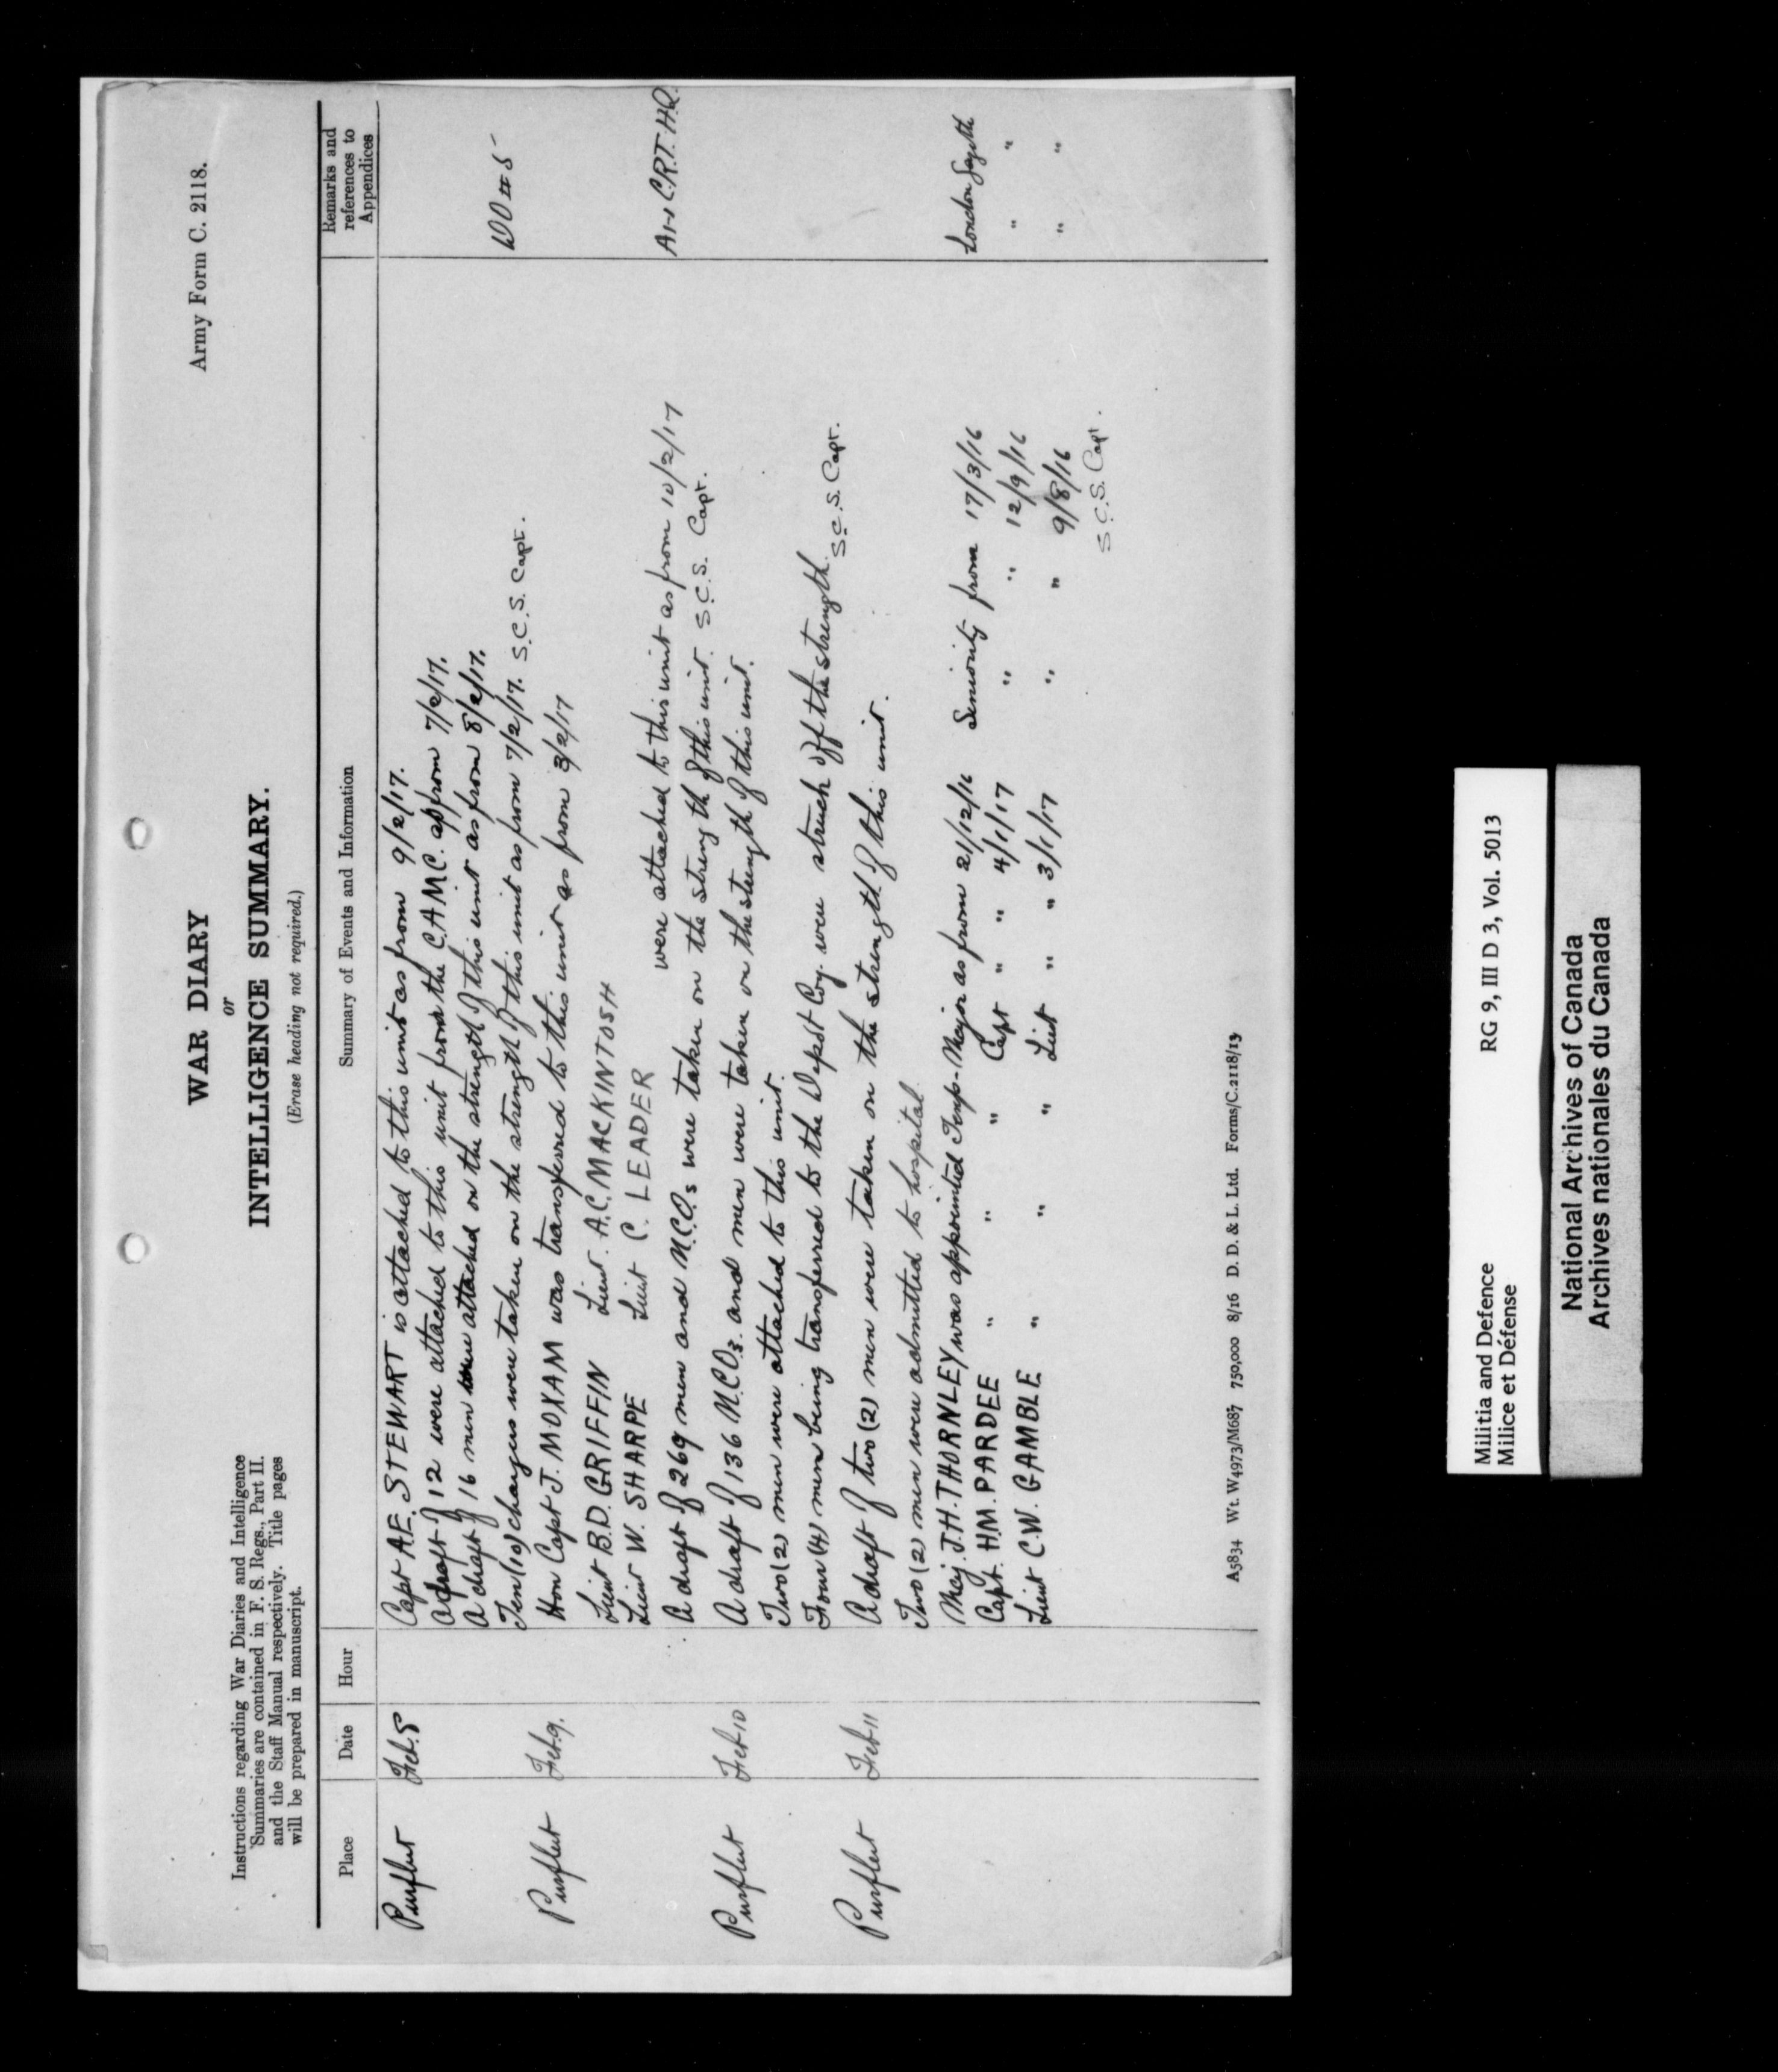 Army Form C. 2118.
WAR DIARY
or
INTELLIGENCE SUMMARY.
(Erase heading not required.)
Instructions regarding War Diaries and Intelligence
Summaries are contained in F. S. Regs., Part II.
and the Staff Manual respectively. Title pages
will be prepared in manuscript.
Place Date Hour Summary of Events and Information Remarks and references to Appendices
Purfleet Feb. 8 Capt A.E. STEWART is attached to this unit as from 9/2/17.
A draft of 12 were attached to this unit from the C.A.M.C. as from 7/2/17.
A draft of 16 men attached on the strength of this unit as from 8/2/17.
Ten (10) chargers were taken on the strength of this unit as from 7/2/17. S.C.S. Capt. DO # 5
Purfleet Feb. 9. Hon Capt J. MOXAM was transferred to this unit as from 3/2/17
Lieut B.D. GRIFFIN Lieut. A.C. MACKINTOSH
Lieut W. SHARPE Lieut C. LEADER
were attached to this unit as from 10/2/17
A draft of 269 men and N.C.O.s were taken on the strength of this unit. S.C.S. Capt. C.R.T. H.Q.
Purfleet Feb 10 A draft of 136 N.C.O.s. and men were taken on the strength of this unit.
Two (2) men were attached to this unit.
Four (4) men being transferred to the Depot Coy. were struck off the strength. S.C.S. Capt.
Purfleet Feb 11 A draft of two (2) men were taken on the strength of this unit.
Two (2) men were admitted to hospital.
Maj. J.H. THORNLEY was appointed Temp-Major as from 21/12/16 Seniority from 17/3/16 London Gazette
Capt. H.M. PARDEE " " " Capt " " 4/1/17 " " 12/9/16 " "
Lieut C.W. GAMBLE " " " Lieut " " 3/1/17 " " 9/8/16 " "
S.C.S. Capt.
A5834 Wt. W4973/M687 750,000 8/16 D. D. & L. Ltd. Forms/C.2118/13
Militia and Defence RG 9, III D 3, Vol. 5013
Milice et Défense
National Archives of Canada
Archives nationales du Canada